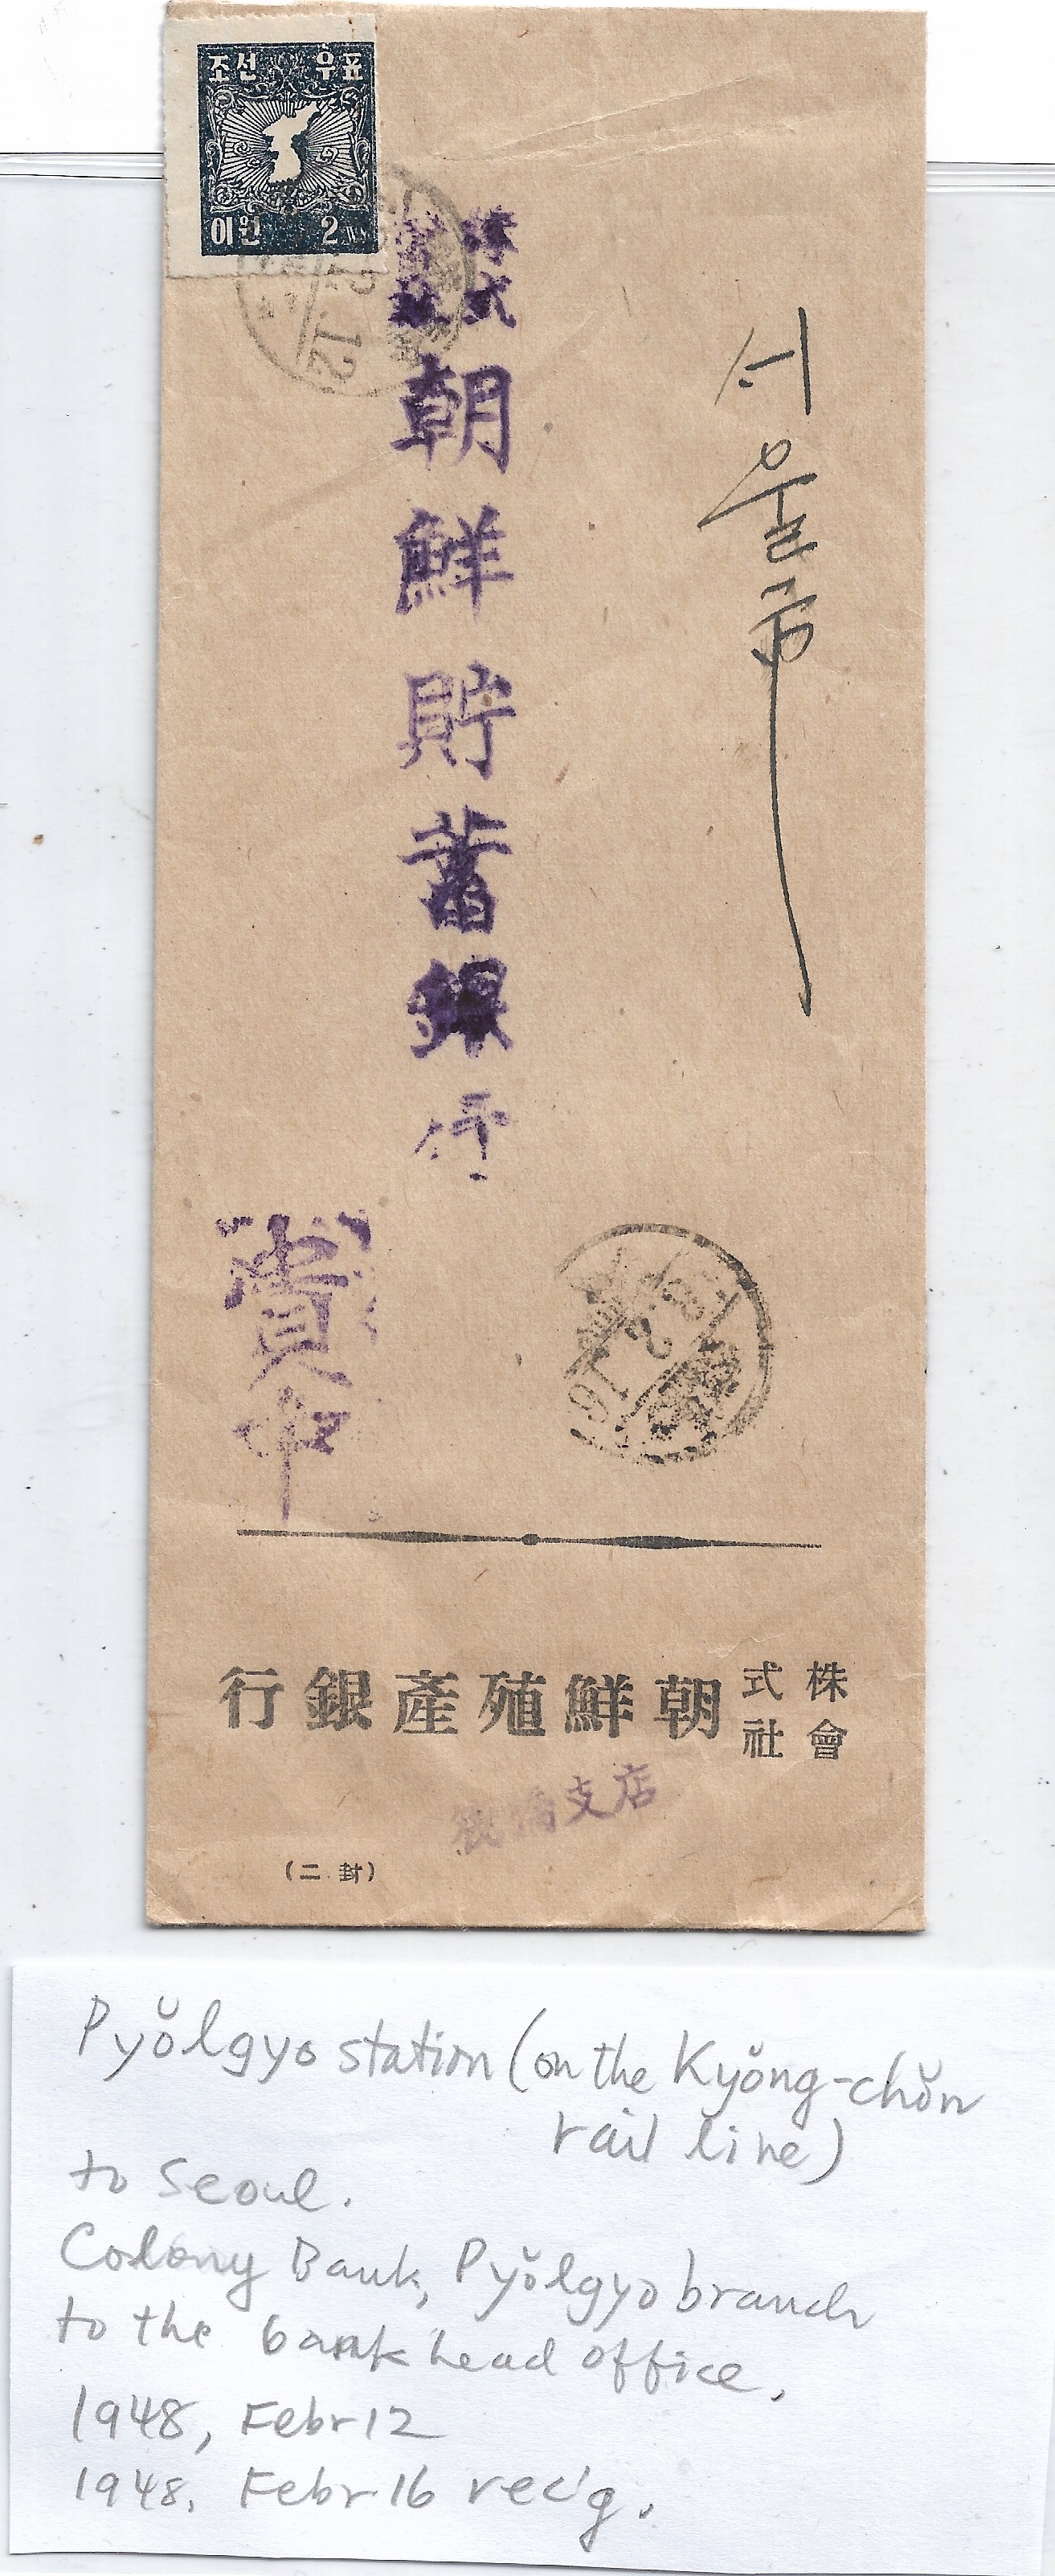 조선 우표
이원 2 WN
12
서울市
株式
會社
朝鮮貯蓄銀行
貴中
2
16
行銀產殖鮮朝 式株
社會
筏橋支店
(二封)
Pyŏlgyo station (on the Kyŏng-chŏn
rail line)
to Seoul.
Colony Bank, Pyŏlgyo branch
to the bank head office,
1948, Febr 12
1948, Febr 16 rec'g.